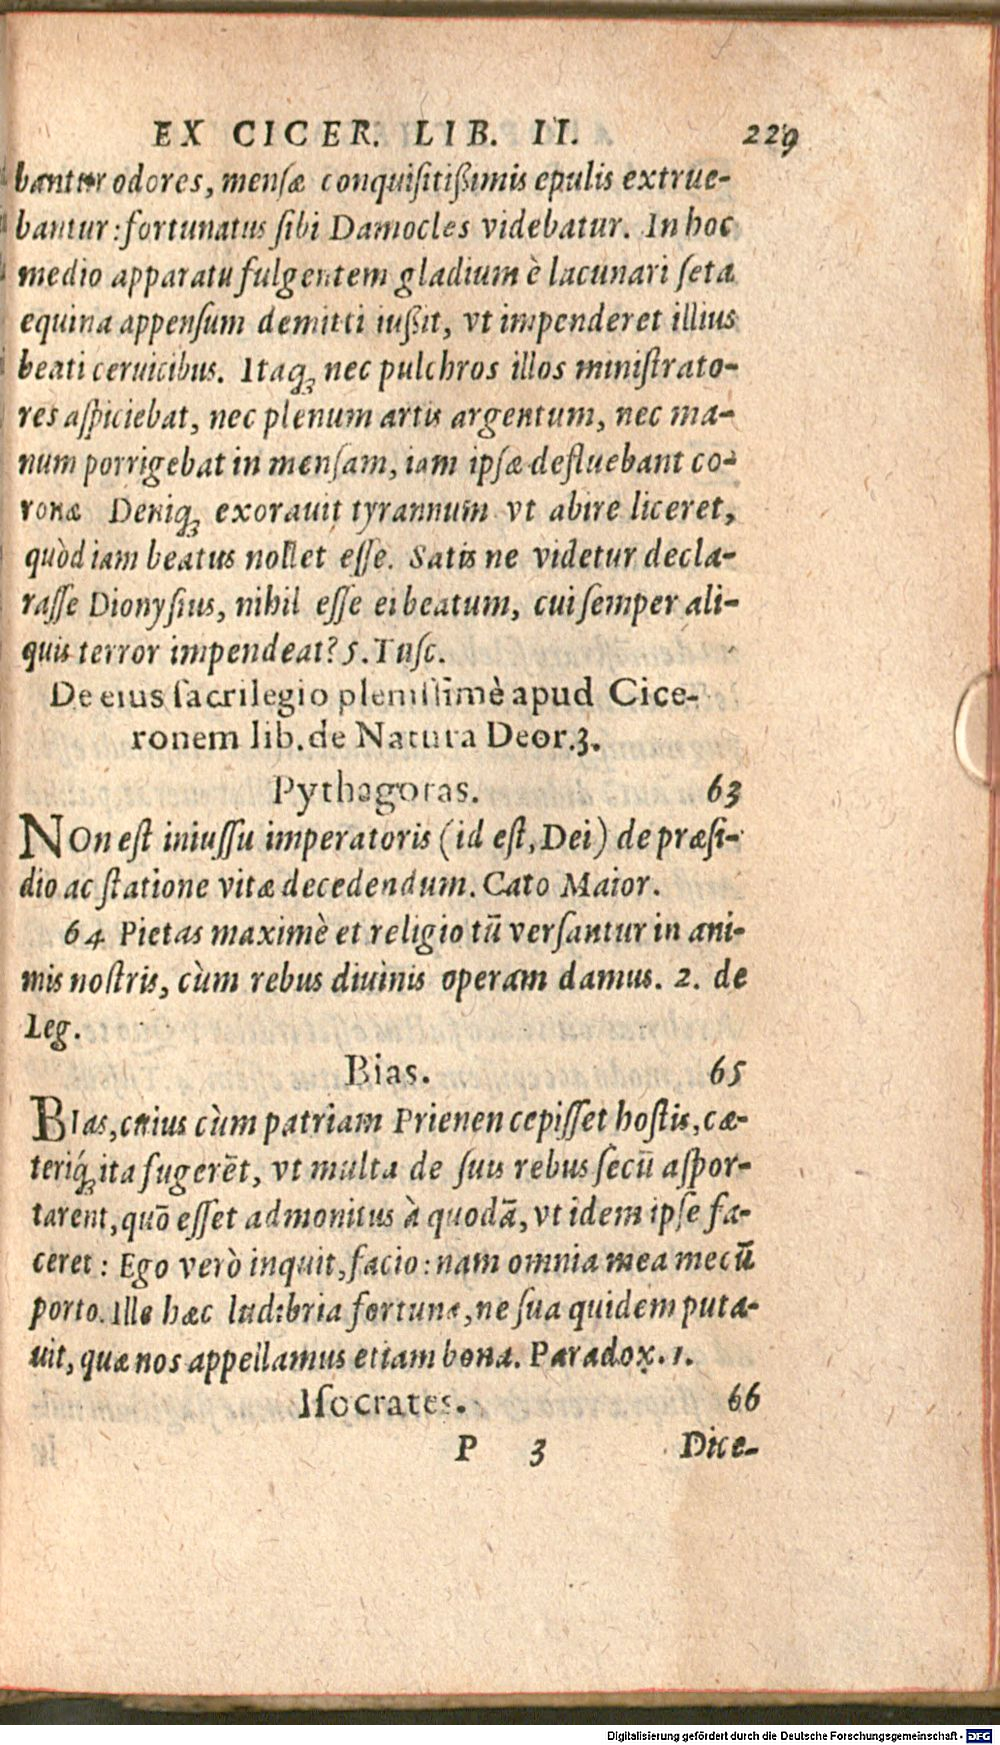 EX CICER. LIB. II. 229
bantur odores, mensæ conquisitißimis epulis extrue-
bantur: fortunatus sibi Damocles videbatur. In hoc
medio apparatu fulgentem gladium è lacunari seta
equina appensum demitti iußit, vt impenderet illius
beati ceruicibus. Itaq; nec pulchros illos ministrato-
res aspiciebat, nec plenum artis argentum, nec ma-
num porrigebat in mensam, iam ipsæ defluebant co-
ronæ Deniq; exorauit tyrannum vt abire liceret,
quòd iam beatus nollet esse. Satis ne videtur decla-
rasse Dionysius, nihil esse ei beatum, cui semper ali-
quis terror impendeat? 5. Tusc.
De eius sacrilegio plenissimè apud Cice-
ronem lib. de Natura Deor. 3.
Pythagoras. 63
NOn est iniussu imperatoris (id est, Dei) de præsi-
dio ac statione vitæ decedendum. Cato Maior.
64 Pietas maximè et religio tū versantur in ani-
mis nostris, cùm rebus diuinis operam damus. 2. de
Leg.
Bias. 65
BIas, cuius cùm patriam Prienen cepisset hostis, cæ-
teriq́; ita fugerēt, vt multa de suis rebus secū aspor-
tarent, quō esset admonitus à quodā, vt idem ipse fa-
ceret: Ego verò inquit, facio: nam omnia mea mecū
porto. Ille hæc ludibria fortunæ, ne sua quidem puta-
uit, quæ nos appellamus etiam bona. Paradox. 1.
Isocrates. 66
P 3 Dice-
Digitalisierung gefördert durch die Deutsche Forschungsgemeinschaft - DFG